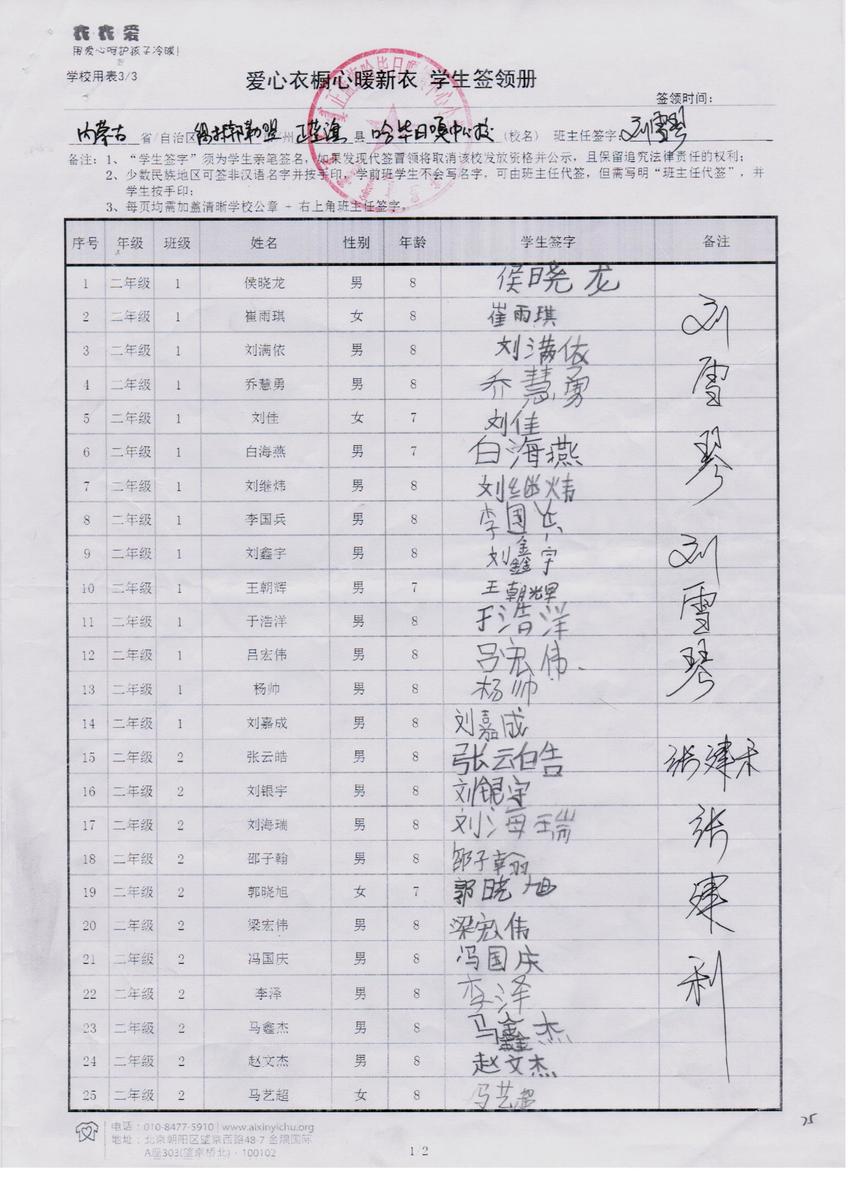 衣衣爱
用爱心呵护孩子冷暖!
学校用表3/3
爱心衣橱心暖新衣 学生签领册
签领时间:
内蒙古 省/自治区 锡林郭勒盟 州 正蓝旗 县 哈毕日嘎中心校 (校名) 班主任签字: 刘雪琴
备注: 1、“学生签字”须为学生亲笔签名,如果发现代签冒领将取消该校发放资格并公示,且保留追究法律责任的权利;
2、少数民族地区可签非汉语名字并按手印,学前班学生不会写名字,可由班主任代签,但需写明“班主任代签”,并
学生按手印;
3、每页均需加盖清晰学校公章 + 右上角班主任签字。
序号 年级 班级 姓名 性别 年龄 学生签字 备注
1 二年级 1 侯晓龙 男 8 侯晓龙
2 二年级 1 崔雨琪 女 8 崔雨琪 刘
3 二年级 1 刘满依 男 8 刘满依
4 二年级 1 乔慧勇 男 8 乔慧勇 雪
5 二年级 1 刘佳 女 7 刘佳
6 二年级 1 白海燕 男 7 白海燕 琴
7 二年级 1 刘继炜 男 8 刘继炜
8 二年级 1 李国兵 男 8 李国兵
9 二年级 1 刘鑫宇 男 8 刘鑫宇 刘
10 二年级 1 王朝辉 男 7 王朝辉
11 二年级 1 于浩洋 男 8 于浩洋 雪
12 二年级 1 吕宏伟 男 8 吕宏伟 琴
13 二年级 1 杨帅 男 8 杨帅
14 二年级 1 刘嘉成 男 8 刘嘉成
15 二年级 2 张云皓 男 8 张云皓 张建
16 二年级 2 刘银宇 男 8 刘银宇
17 二年级 2 刘海瑞 男 8 刘海瑞 张
18 二年级 2 邵子翰 男 8 邵子翰
19 二年级 2 郭晓旭 女 7 郭晓旭 建
20 二年级 2 梁宏伟 男 8 梁宏伟
21 二年级 2 冯国庆 男 8 冯国庆
22 二年级 2 李泽 男 8 李泽 利
23 二年级 2 马鑫杰 男 8 马鑫杰
24 二年级 2 赵文杰 男 8 赵文杰
25 二年级 2 马艺超 女 8 马艺超
电话: 010-8477-5910 | www.aixinyichu.org
地址: 北京朝阳区望京西路48-7 金隅国际
A座303(望京桥北) · 100102
12
25